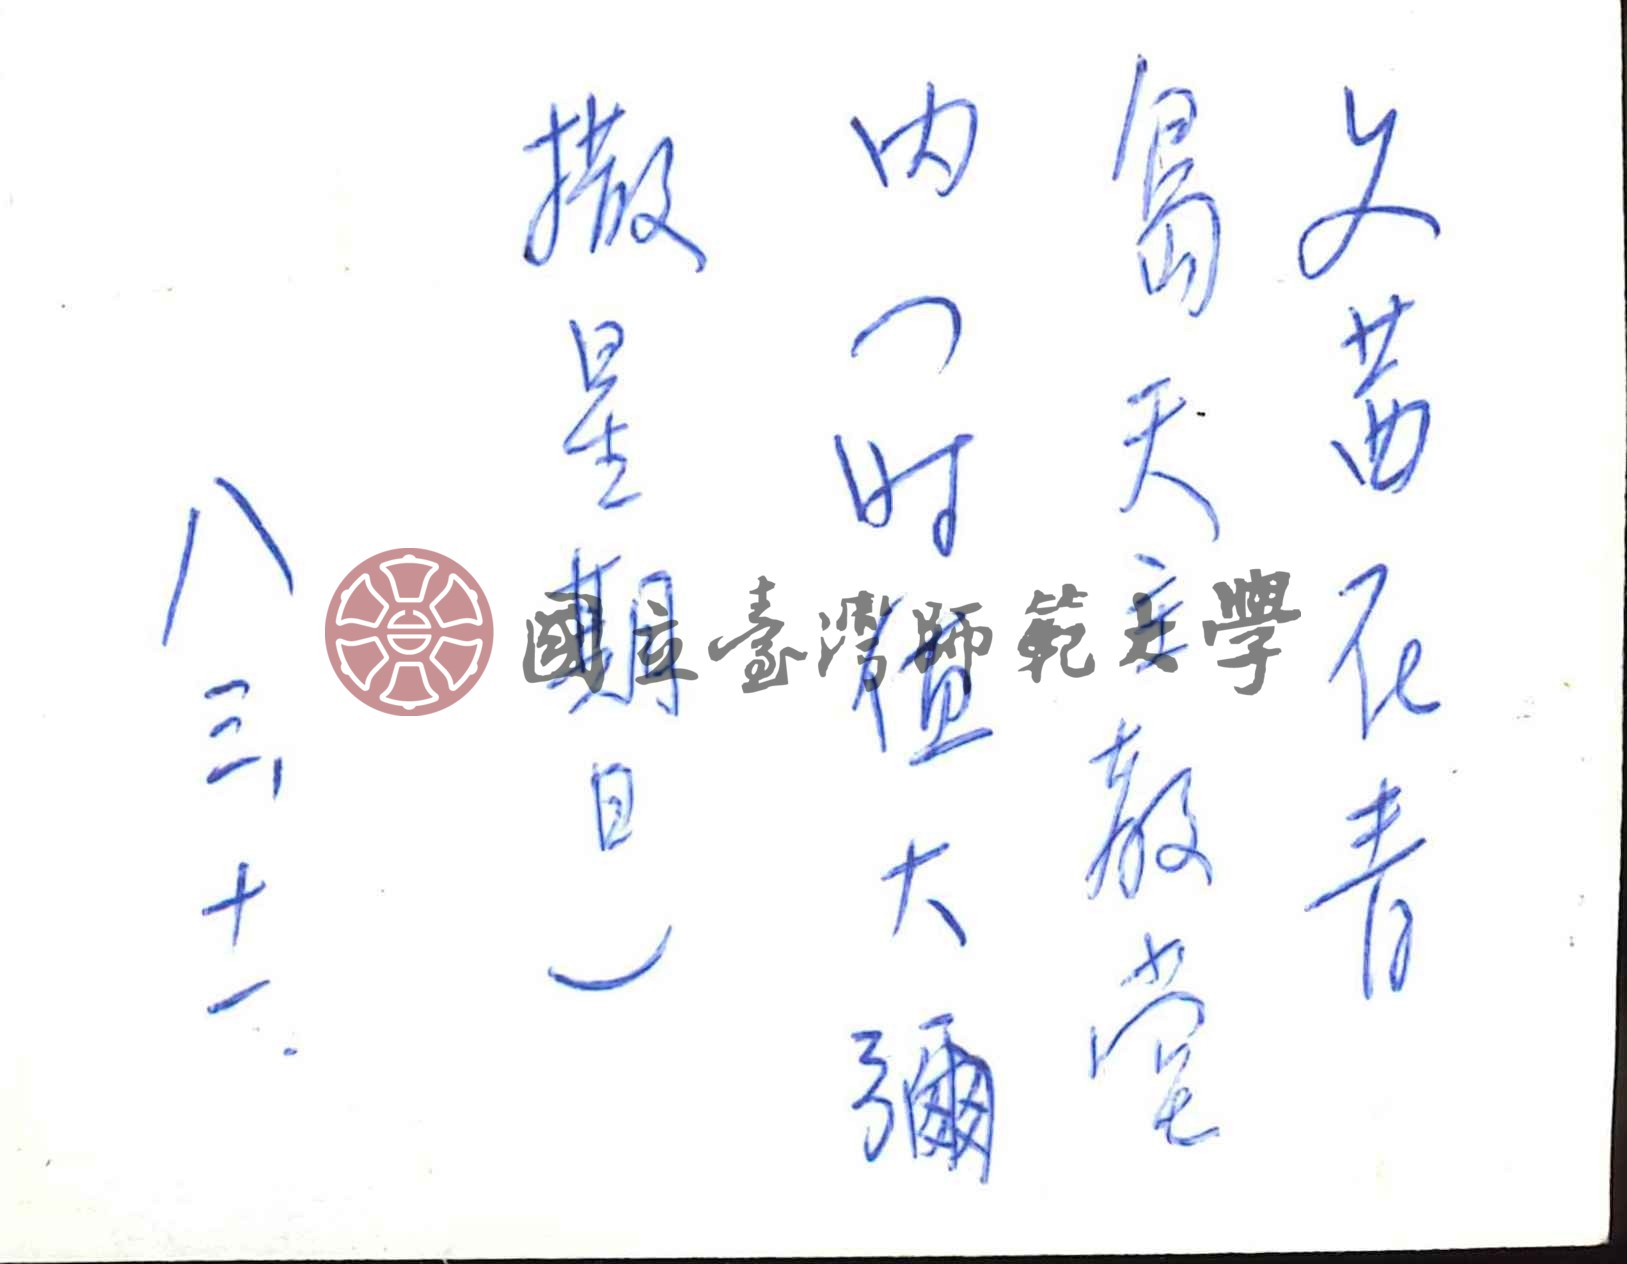 文茜在青
島天主教堂
内（时值大彌
撒星期日）
八三、十一.
國立臺灣師範大學